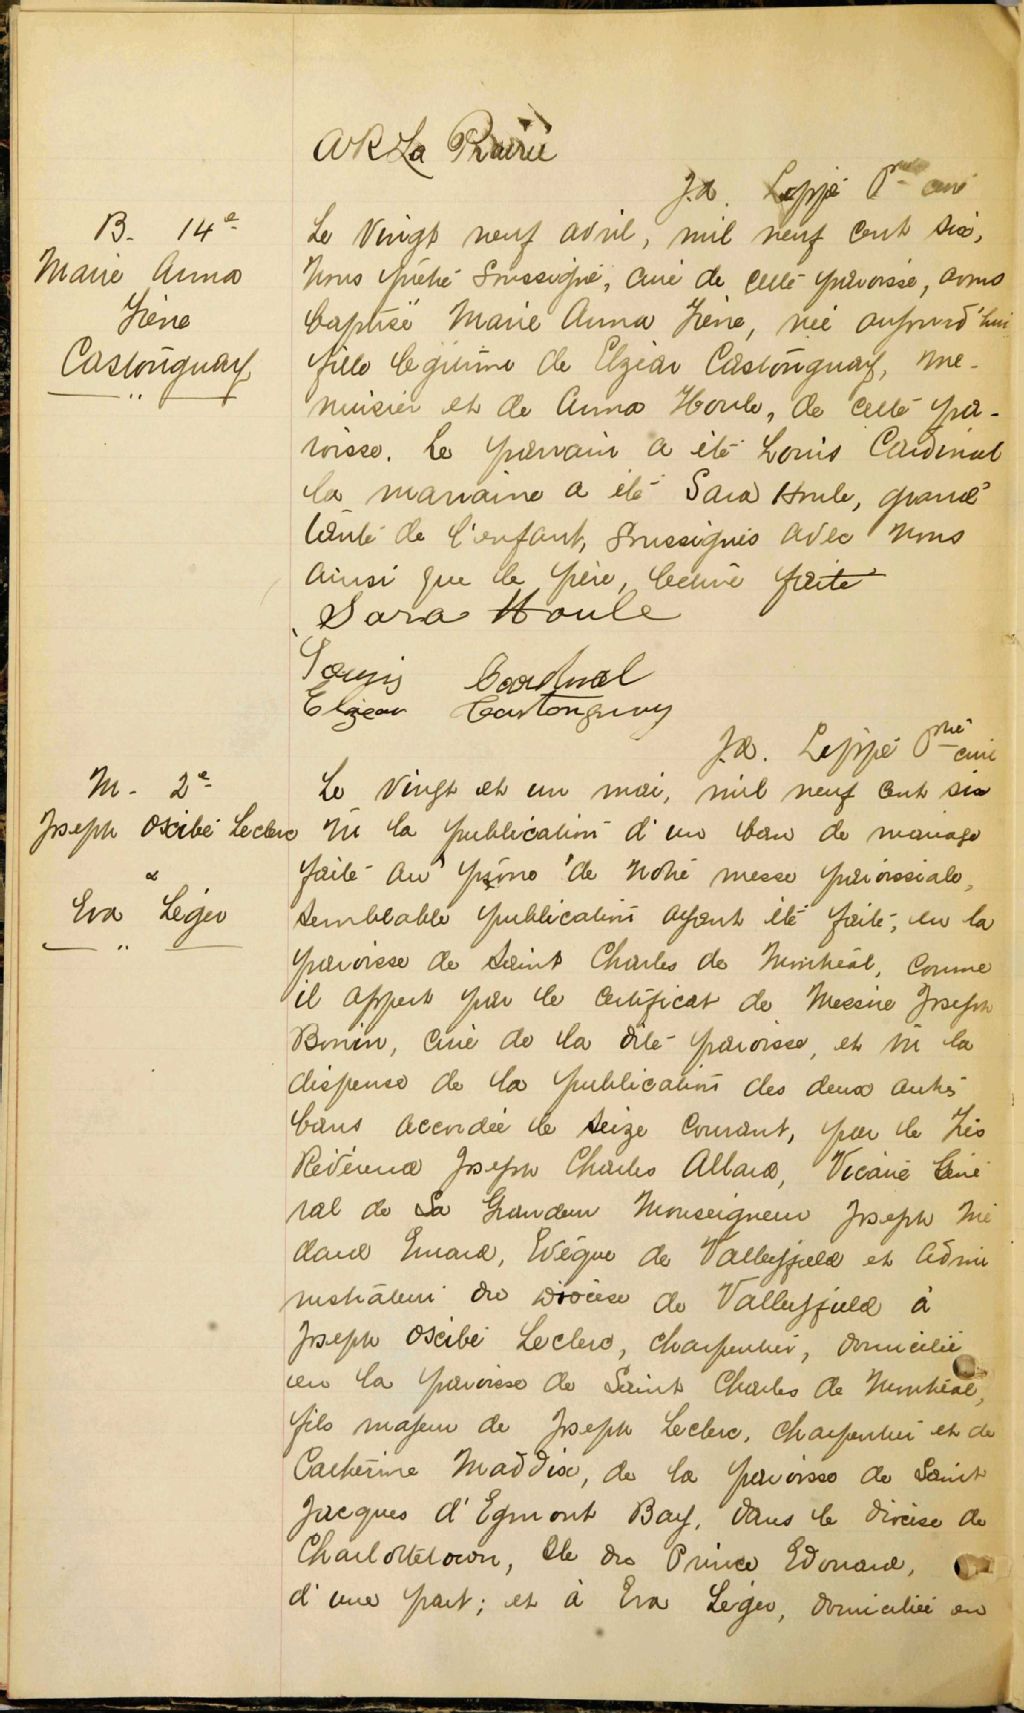 A R La Prairie
J.A. Leppé Ptre curé
B. 14e
Marie Anna
Irène
Castonguay
Le vingt neuf avril, mil neuf cent six,
Nous prêtre soussigné, curé de cette paroisse, avons
baptisé Marie Anna Irène, née aujourd'hui
fille légitime de Elzéar Castonguay, me-
nuisier et de Anna Houle, de cette pa-
roisse. Le parrain a été Louis Cardinal
la marraine a été Sara Houle, grand'
tante de l'enfant, soussignés avec nous
ainsi que le père, lecture faite
Sara Houle
Louis Cardinal
Elzear Castonguay
J.A. Leppé Ptre curé
M. 2e
Joseph Oscibé Leclerc
&
Eva Léger
Le vingt et un mai, mil neuf cent six
Vu la publication d'un ban de mariage
faite au prône de notre messe paroissiale,
semblable publication ayant été faite, en la
paroisse de Saint Charles de Montréal, comme
il appert par le certificat de Messire Joseph
Bonin, curé de la dite paroisse, et vu la
dispense de la publication des deux autres
bans accordée le seize courant, par le Très
Révérend Joseph Charles Allard, Vicaire Géné
ral de Sa Grandeur Monseigneur Joseph Mé
dard Emard, Evêque de Valleyfield et admi
nistrateur du diocèse de Valleyfield à
Joseph Oscibé Leclerc, charpentier, domicilié
en la paroisse de Saint Charles de Montréal,
fils majeur de Joseph Leclerc, charpentier et de
Catherine Maddix, de la paroisse de Saint
Jacques d'Egmont Bay, dans le diocèse de
Charlottetown, Ile du Prince Edouard,
d'une part; et à Eva Léger, domiciliée en